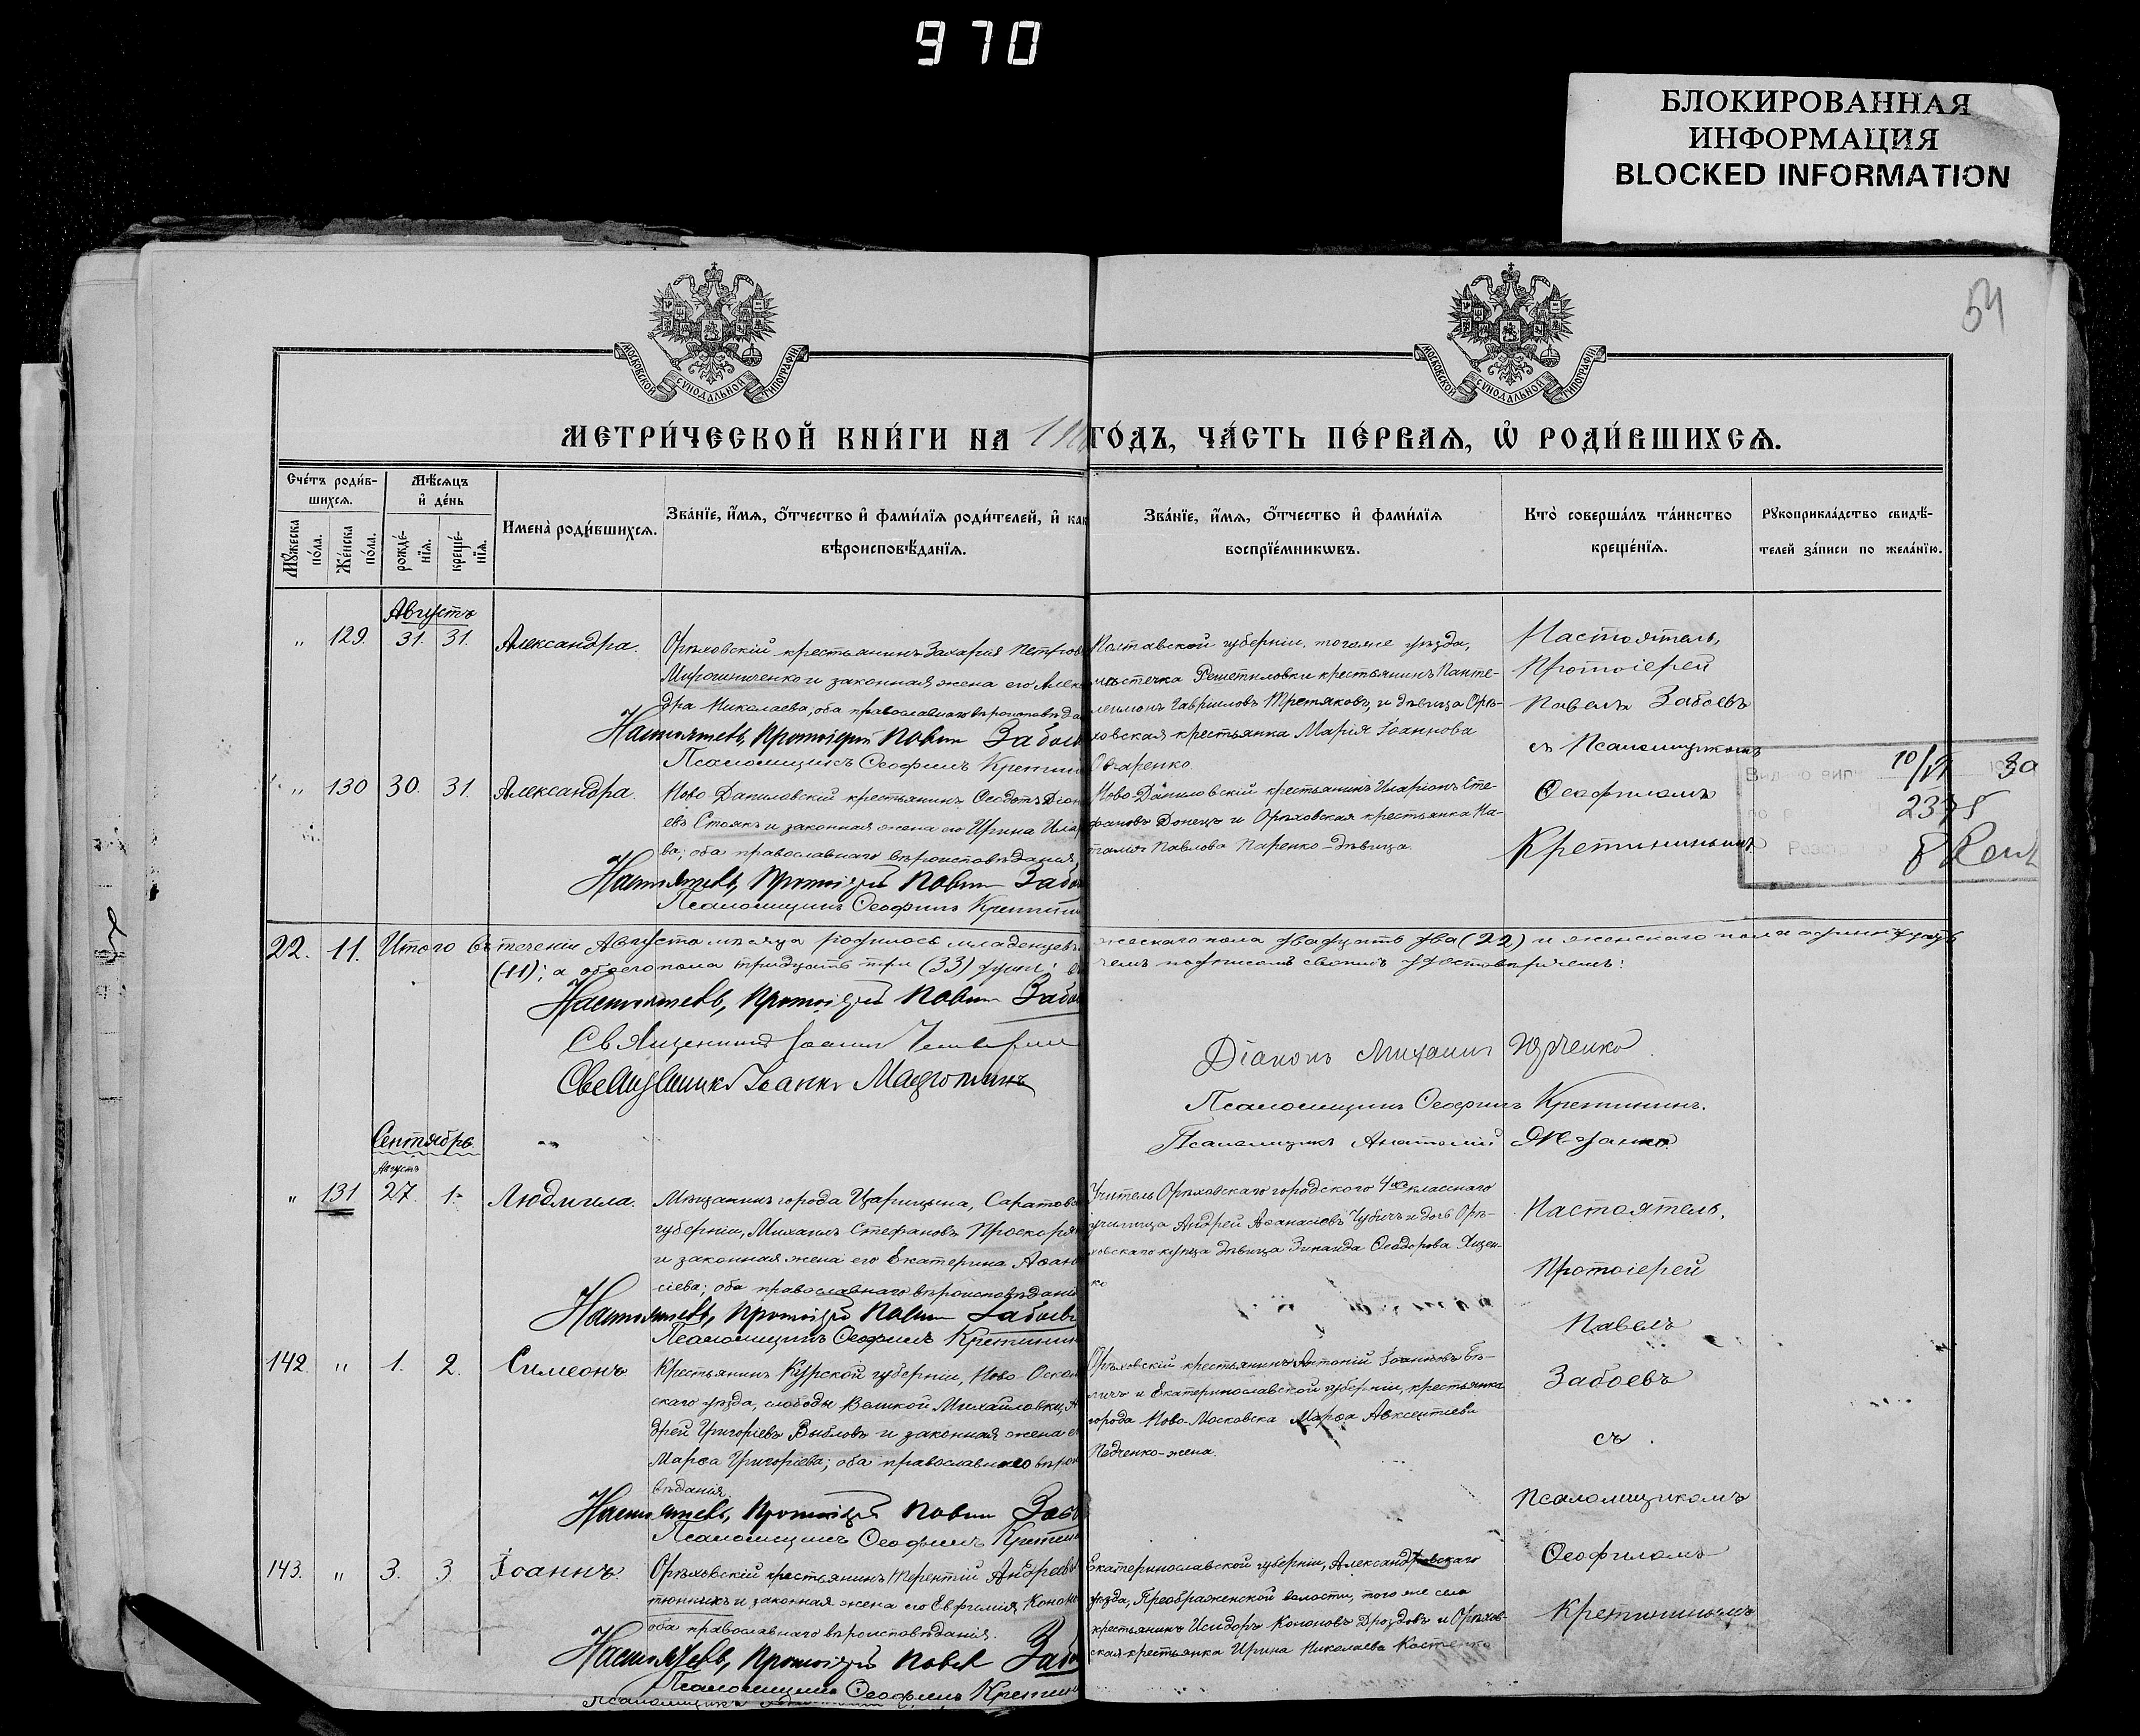 970
БЛОКИРОВАННАЯ
ИНФОРМАЦИЯ
BLOCKED INFORMATION
54
МОСКОВСКОЙ СѴНОДАЛЬНОЙ ТИПОГРАФІИ
МОСКОВСКОЙ СѴНОДАЛЬНОЙ ТИПОГРАФІИ
МЕТРИ́ЧЕСКОЙ КНИ́ГИ НА 1 ГО́ДЪ, ЧА́СТЬ ПЕ́РВАЯ, Ѽ РОДИ́ВШИХСЯ.
Сче́тъ роди́в-
шихся.
Мѣ́сяцъ
и҆ де́нь
Мꙋ́жеска
по́ла.
Же́нска
по́ла.
рожде́-
нїя.
креще́-
нїя.
Имена̀ роди́вшихся.
Зва́нїе, и҆́мя, ѻ҆́тчество и҆ фами́лїя роди́телей, и҆ как
вѣроисповѣ́данїя.
Зва́нїе, и҆́мя, ѻ҆́тчество и҆ фами́лїя
воспрїе́мникѡвъ.
Кто̀ соверша́лъ та́инство
креще́нїя.
Рꙋкоприкла́дство свидѣ́-
телей за́писи по жела́нїю.
Августъ
„ 129. 31. 31. Александра.
Орѣховскій крестьянинъ Захарія Петров
Мирошниченко и законная жена его Алекс
дра Николаева, оба православнаго вѣроисповѣда
Настоятель, Протоіерей Павелъ Забоев
Псаломщикъ Ѳеофилъ Кретинин
Полтавской губерніи, тогоже уѣзда,
мѣстечка Решетиловки крестьянинъ Панте-
леимонъ Гавриловъ Третьяковъ, и дѣвица Орѣ-
ховская крестьянка Марія Іоаннова
Овчаренко.
Настоятель,
Протоіерей
Павелъ Забоевъ
съ Псаломщикомъ
Ѳеофиломъ
Кретининымъ
„ 130 30. 31. Александра.
Ново Даниловскій крестьянинъ Ѳеодотъ Діон
евъ Стоякъ и законная жена его Ирина Ила
ва; оба православнаго вѣроисповѣданія,
Настоятель, Протоіерей Павелъ Забо
Псаломщикъ Ѳеофилъ Кретини
Ново-Даниловскій крестьянинъ Иларіонъ Сте-
фановъ Донецъ и Орѣховская крестьянка На-
талія Павлова Паренко-дѣвица.
10/VI 30
2375
22. 11. Итого въ теченіи Августа мѣсяца родилось младенцевъ
жескаго пола двадцать два (22) и женскаго пола одинадцать
(11); а обоего пола тридцать три (33) души; въ
чемъ подписомъ своимъ удостовѣряемъ:
Настоятель, Протоіерей Павелъ Забо
Священникъ Іоаннъ
Священникъ Іоаннъ
Діаконъ Михаилъ Юрченко.
Псаломщикъ Ѳеофилъ Кретининъ.
Псаломщикъ Анатолій
Сентябрь.
Августъ
„ 131 27. 1. Людмила.
Мѣщанинъ города Царицына, Саратовс
губерніи, Михаилъ Стефановъ Проскуря
и законная жена его Екатерина Аѳана
сіева; оба православнаго вѣроисповѣдані
Настоятель, Протоіерей Павелъ Забоевъ
Псаломщикъ Ѳеофилъ Кретинин
Учитель Орѣховскаго городского 4хъ класснаго
училища Андрей Аѳанасіевъ Чубичъ и дочь Орѣ-
ховскаго купца дѣвица Зинаида Ѳеодорова Яцен-
ко
Настоятель,
Протоіерей
Павелъ
Забоевъ
съ
Псаломщикомъ
Ѳеофиломъ
Кретининымъ
142 „ 1. 2. Симеонъ
Крестьянинъ Курской губерніи, Ново-Оскол
скаго уѣзда, слободы Великой Михайловки, Ан
дрей Григоріевъ Выбловъ и законная жена е
Марѳа Григоріева; оба православнаго вѣрои
вѣданія.
Настоятель, Протоіерей Павелъ Забо
Псаломщикъ Ѳеофилъ Кретини
Орѣховскій крестьянинъ Антоній Іоанновъ Бѣ-
личъ и Екатеринославской губерніи, крестьянка
города Ново-Московска Марѳа Авксентіева
Педченко-жена.
143. „ 3. 3 Іоаннъ.
Орѣховскій крестьянинъ Терентій Андреев
тюнникъ и законная жена его Евфимія Конон
оба православнаго вѣроисповѣданія.
Настоятель, Протоіерей Павелъ Забо
Псаломщикъ Ѳеофилъ Кретини
Екатеринославской губерніи, Александровскаго
уѣзда, Преображенской волости, того же села
крестьянинъ Исидоръ Кононовъ Дроздовъ и Орѣхов-
ская крестьянка Ирина Николаева Костенко